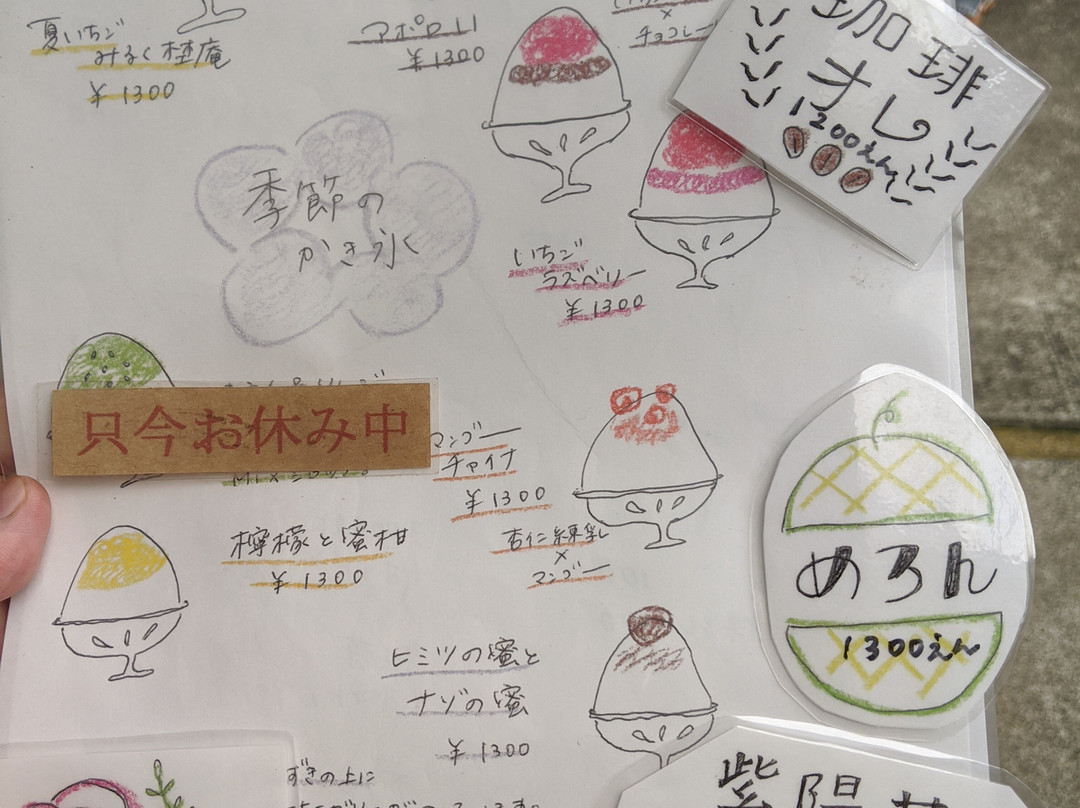 夏いちご
みるく杢庵
¥1300
アポロLI
¥1300
×
チョコレー
珈琲
オレ
1200えん
季節の
かき氷
いちご
ラズベリー
¥1300
只今お休み中
マンゴー
チャイナ
¥1300
杏仁練乳
×
マンゴー
檸檬と蜜柑
¥1300
めろん
1300えん
ヒミツの蜜と
ナゾの蜜
¥1300
ずきの上に
紫陽